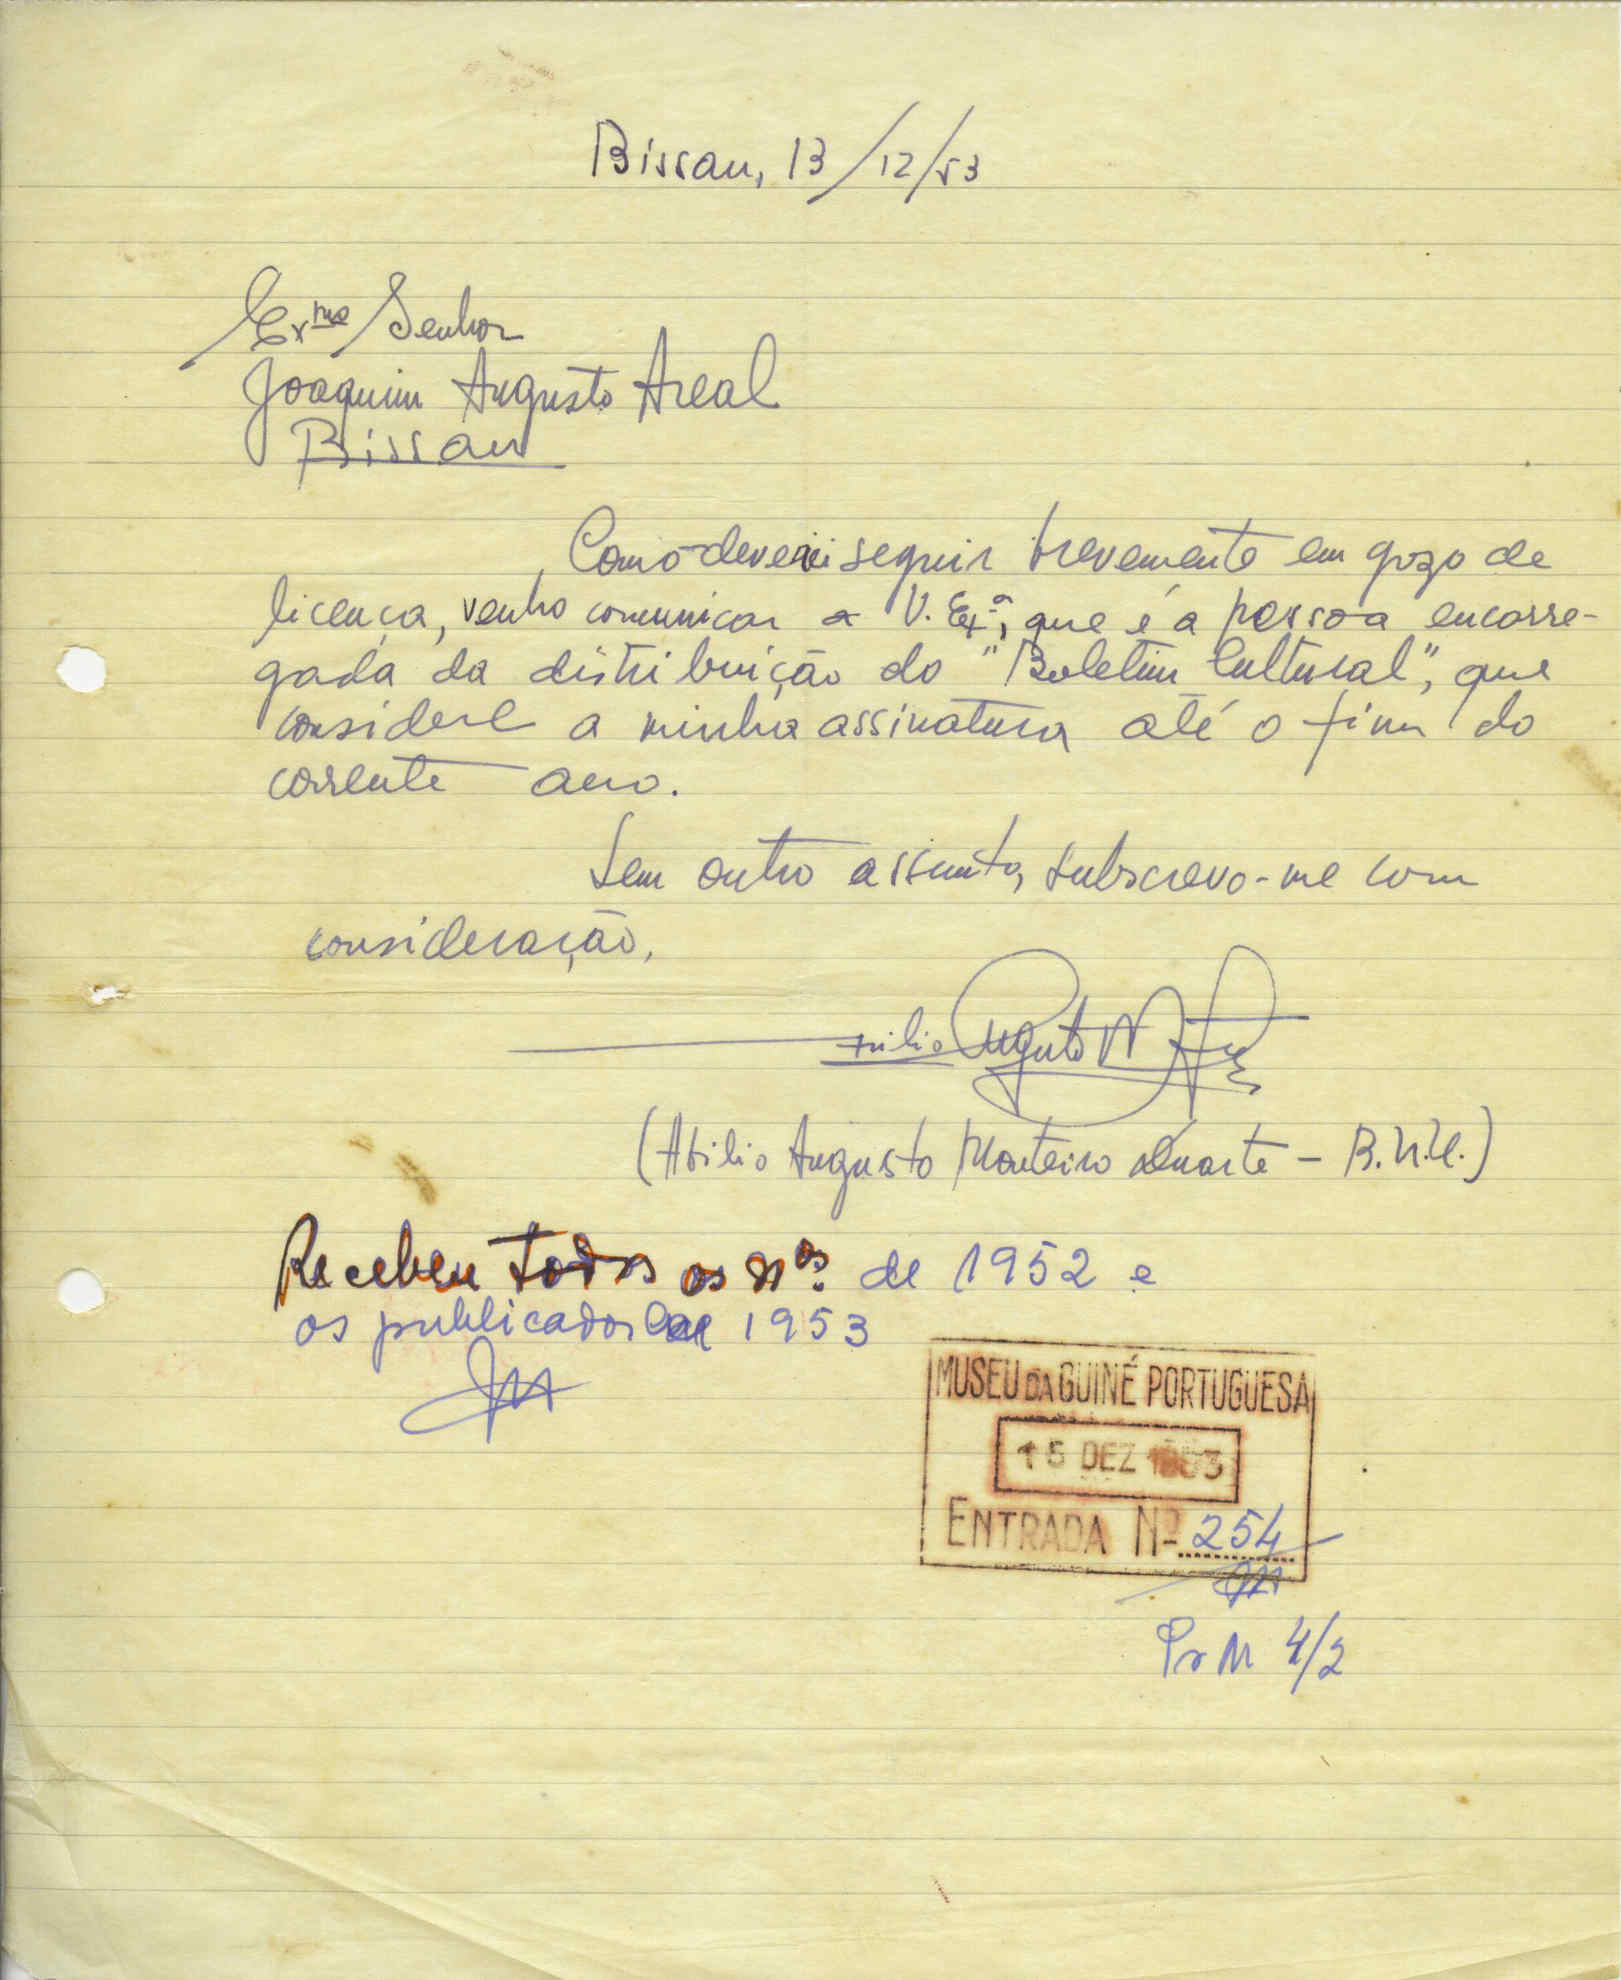 Bissau, 13/12/53
Exmo Senhor
Joaquim Augusto Areal
Bissau
Como deverei seguir brevemente em gozo de
licença, venho comunicar a V. Ex.ª, que é a pessoa encarre-
gada da distribuição do "Boletim Cultural", que
considere a minha assinatura até o fim do
corrente ano.
Sem outro assunto, subscrevo-me com
consideração,
Abilio Augusto M
(Abilio Augusto Monteiro Duarte – B.N.U.)
Recebeu todos os nos. de 1952 e
os publicados de 1953
MUSEU DA GUINÉ PORTUGUESA
15 DEZ 1953
ENTRADA Nº 254
Pr M 4/2